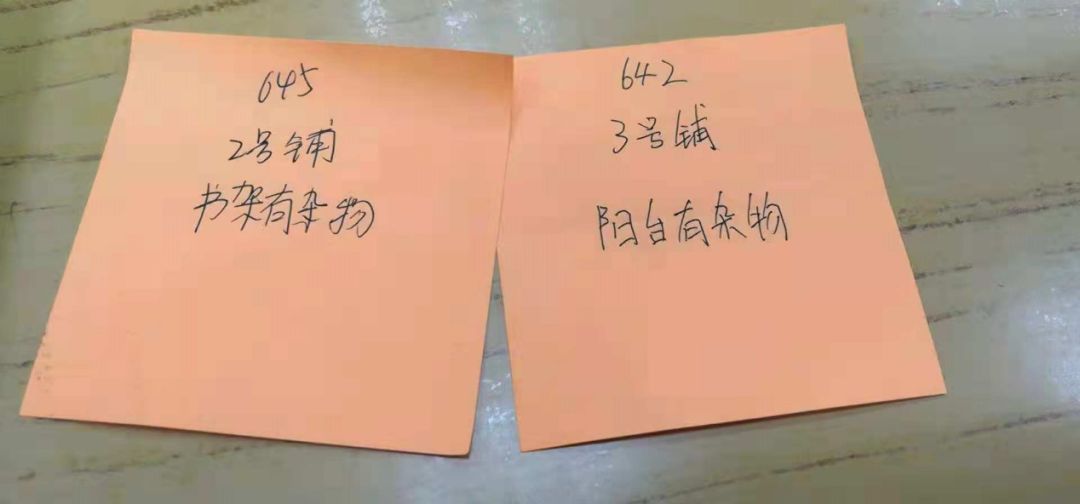 645
2号铺
书架有杂物
642
3号铺
阳台有杂物